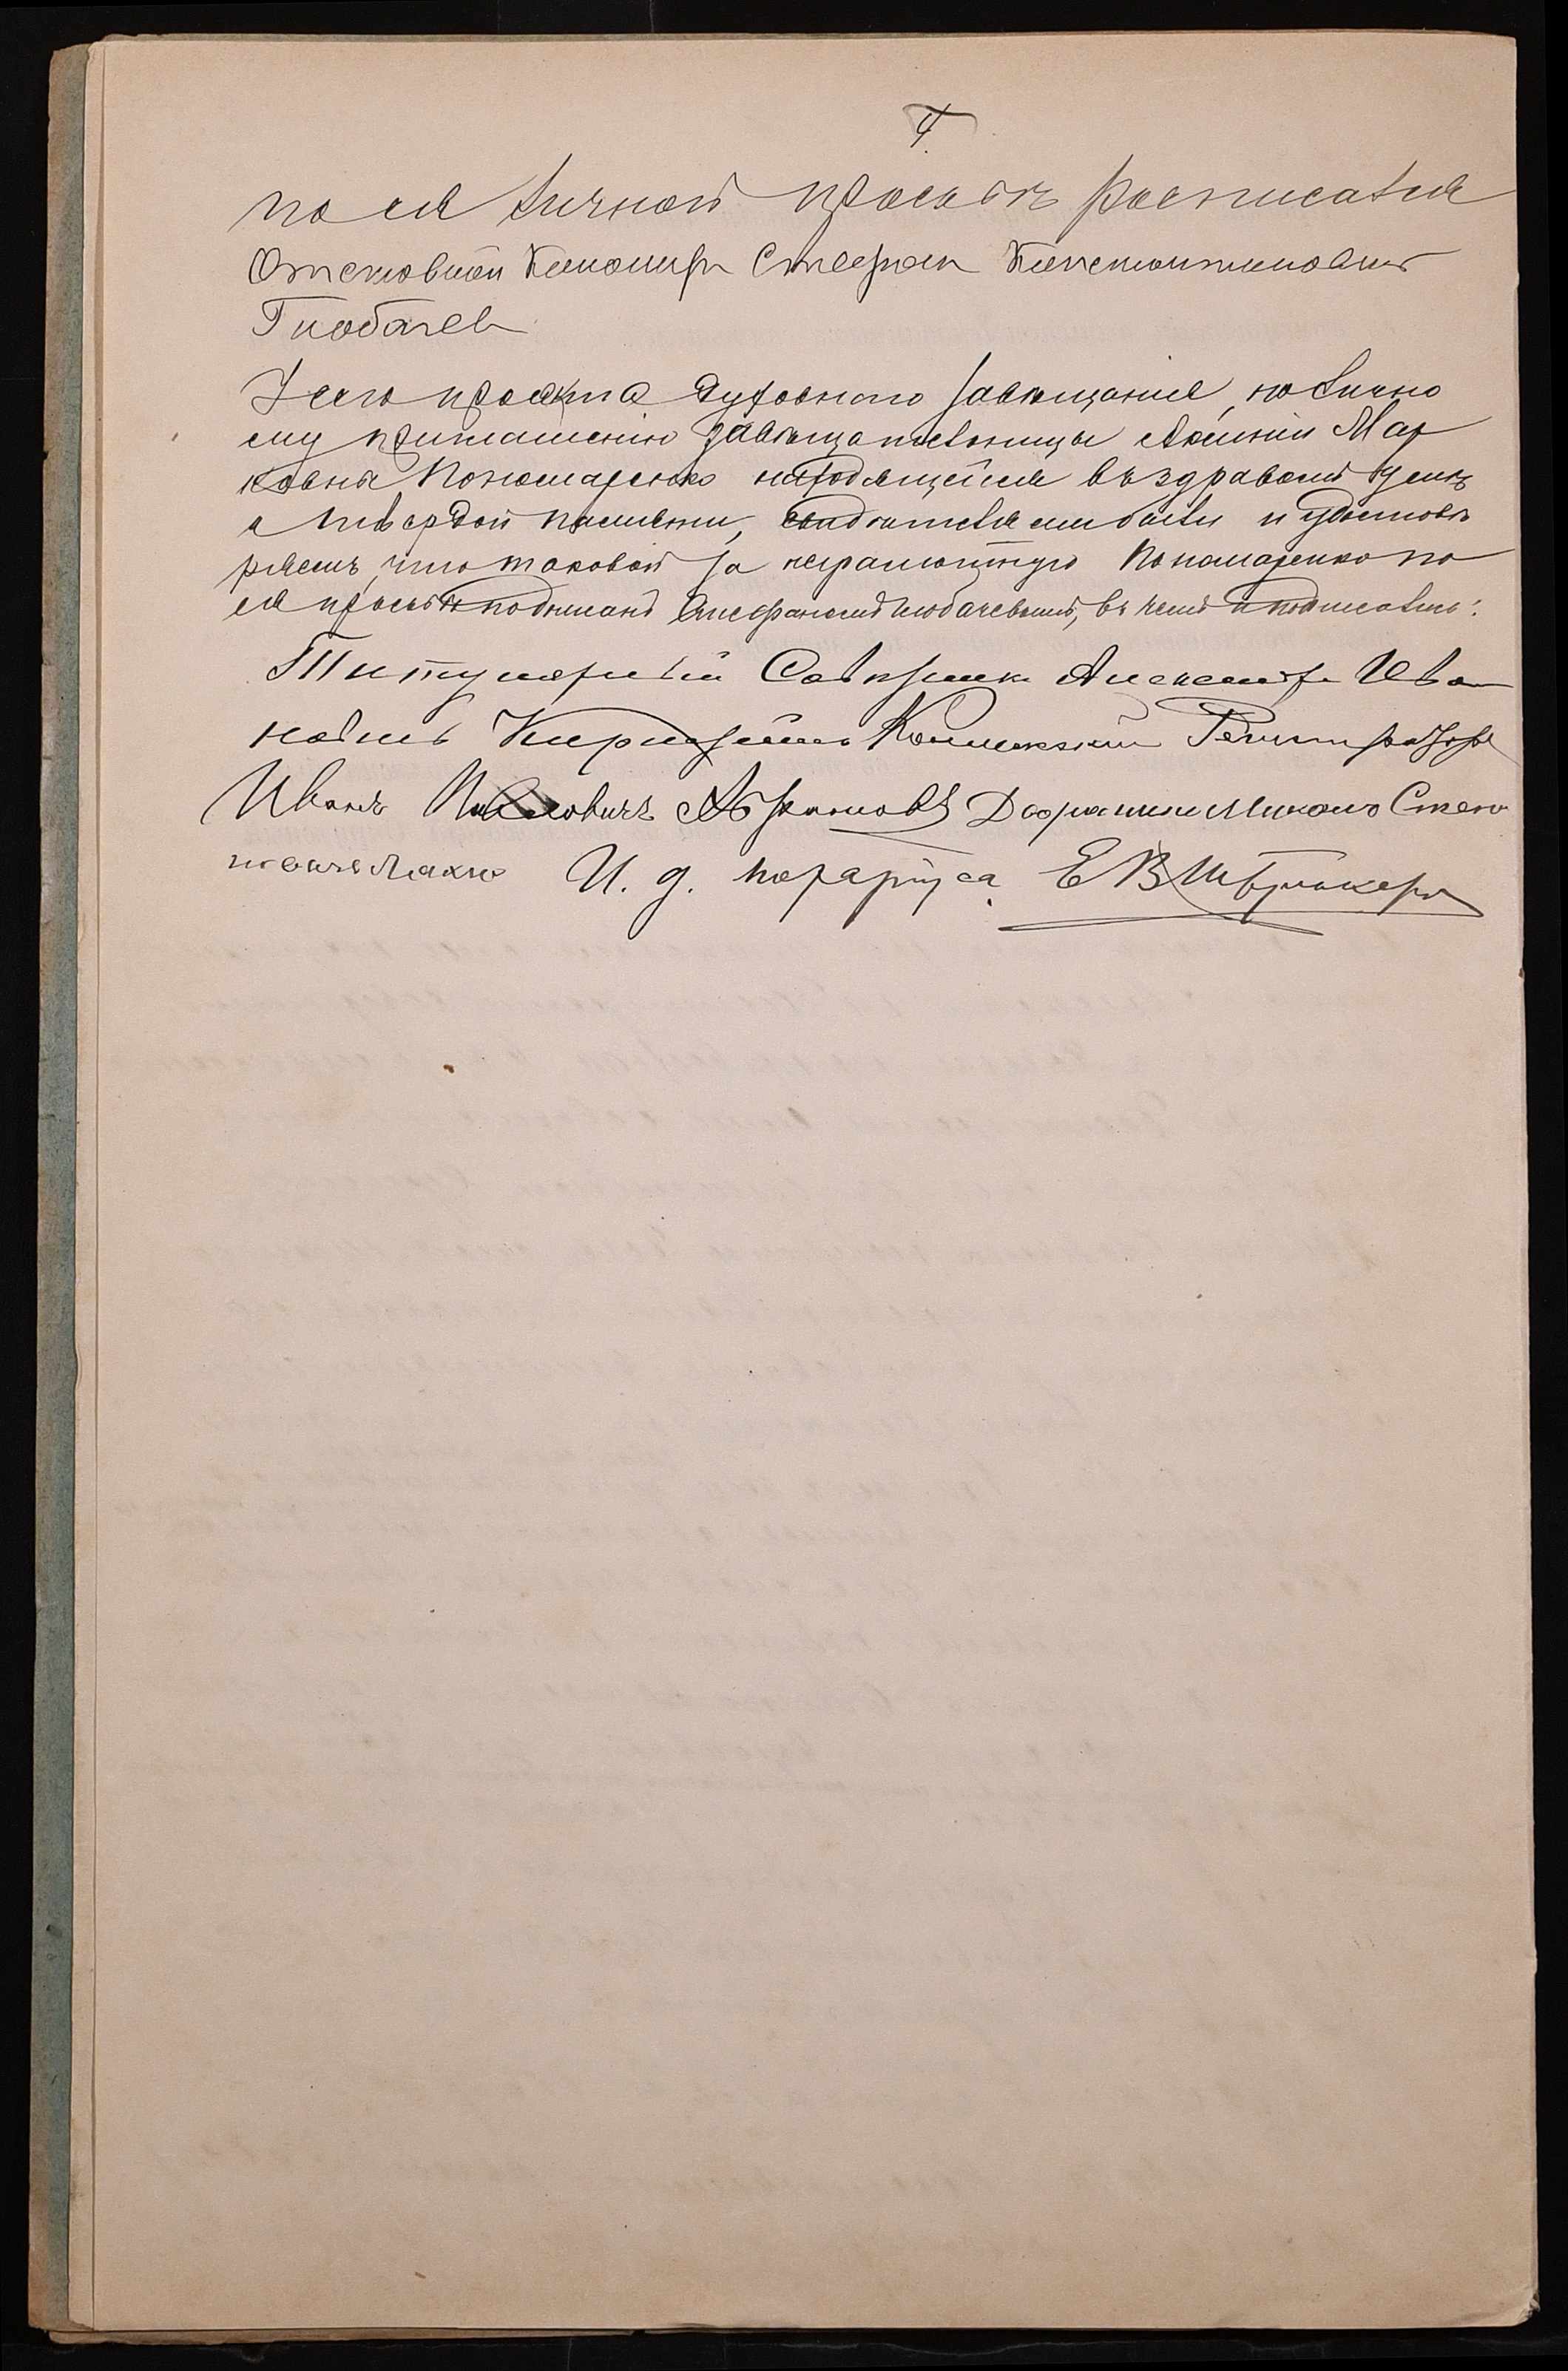 4
по ея личной просьбѣ росписался
Отставной Стефан Константинович
Глобачев
У сего проекта духовного завѣщания, по лично
му приглашению завѣщательницы Аксиньи Мар
ковны Пономаренко находящейся въ здравомъ умѣ
и твердой памяти, свидѣтелями были и удостовѣ
ряемъ, что таковой за неграмотную Пономаренко по
ея просьбѣ подписанъ Стефаномъ Глобачевымъ, въ чемъ и подписались:
Титулярный Совѣтник Александр Ива
нович Коллежский Регистратор
Иванъ Абрамовъ Дворянин
И. д. нотариуса Е В